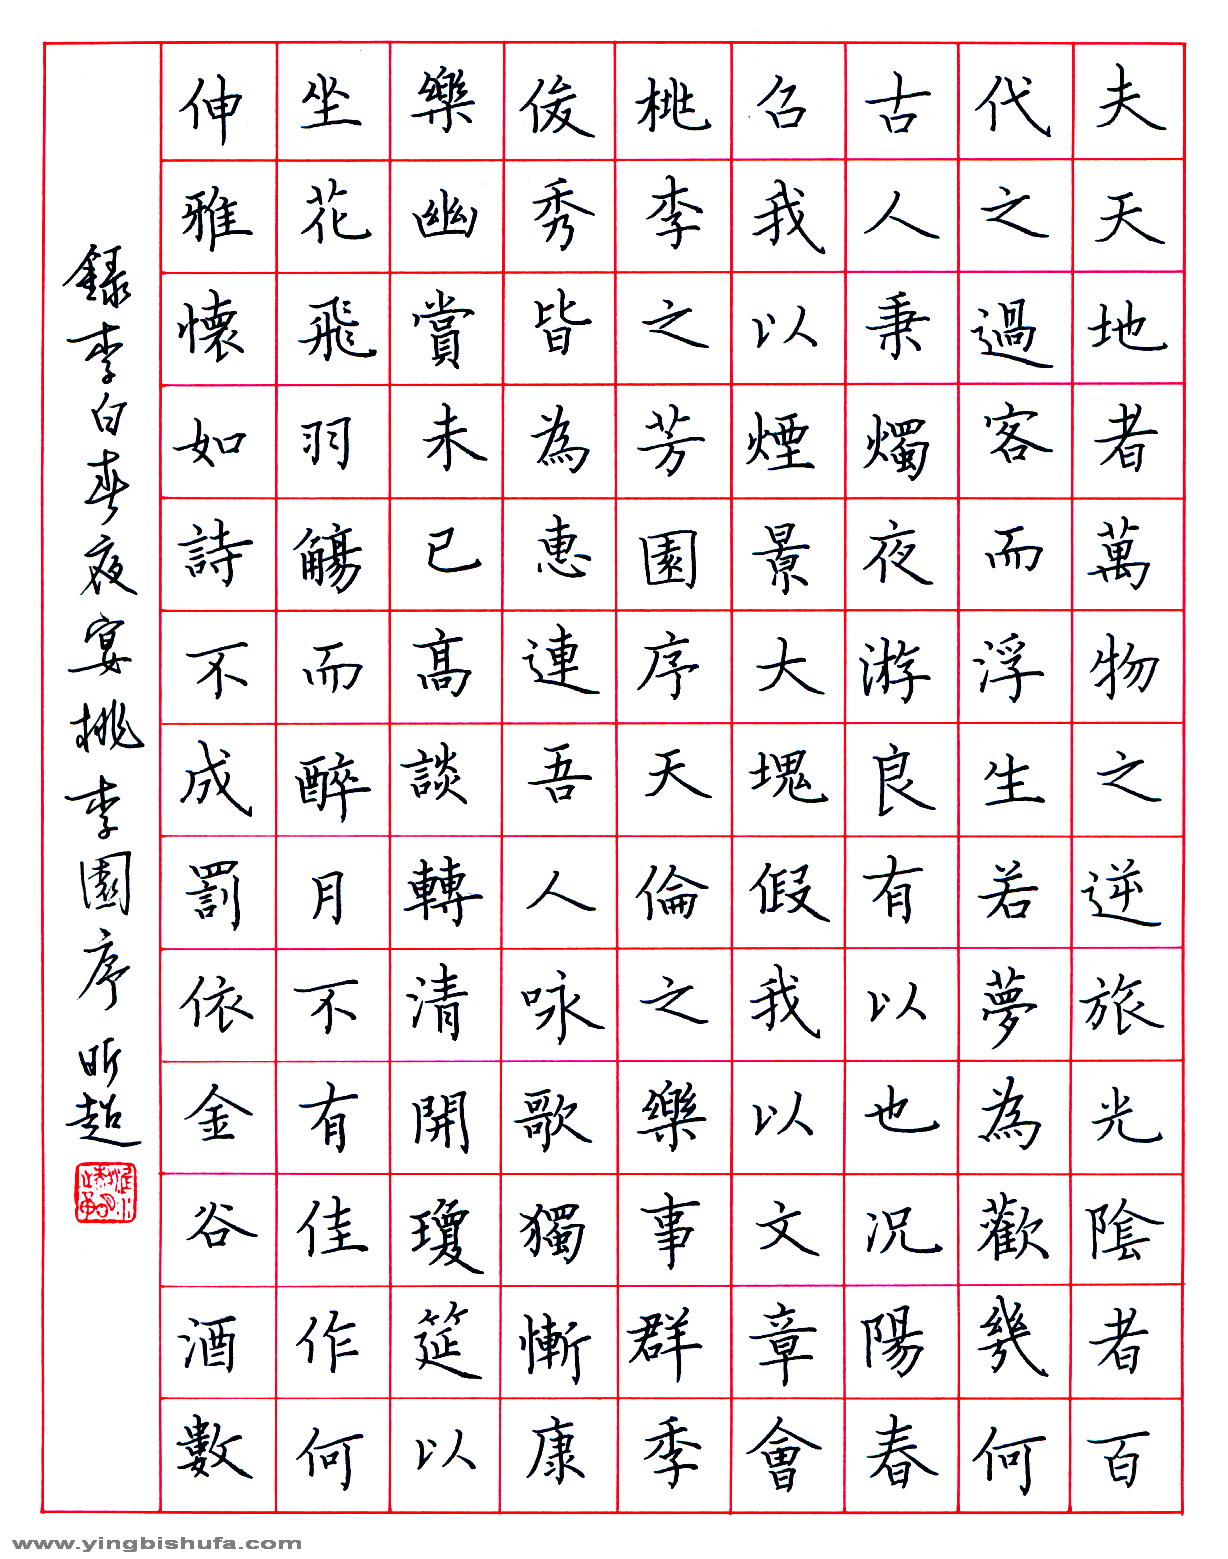 夫天地者萬物之逆旅光陰者百
代之過客而浮生若夢為歡幾何
古人秉燭夜游良有以也况陽春
召我以煙景大塊假我以文章會
桃李之芳園序天倫之樂事群季
俊秀皆為惠連吾人咏歌獨慚康
樂幽賞未已高談轉清開瓊筵以
坐花飛羽觴而醉月不有佳作何
伸雅懷如詩不成罰依金谷酒數
錄李白春夜宴桃李園序 昕超
www.yingbishufa.com